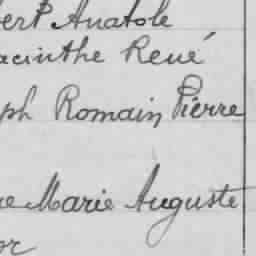 bert Anatole
acinthe René
ph Romain Pierre
ne Marie Auguste
or